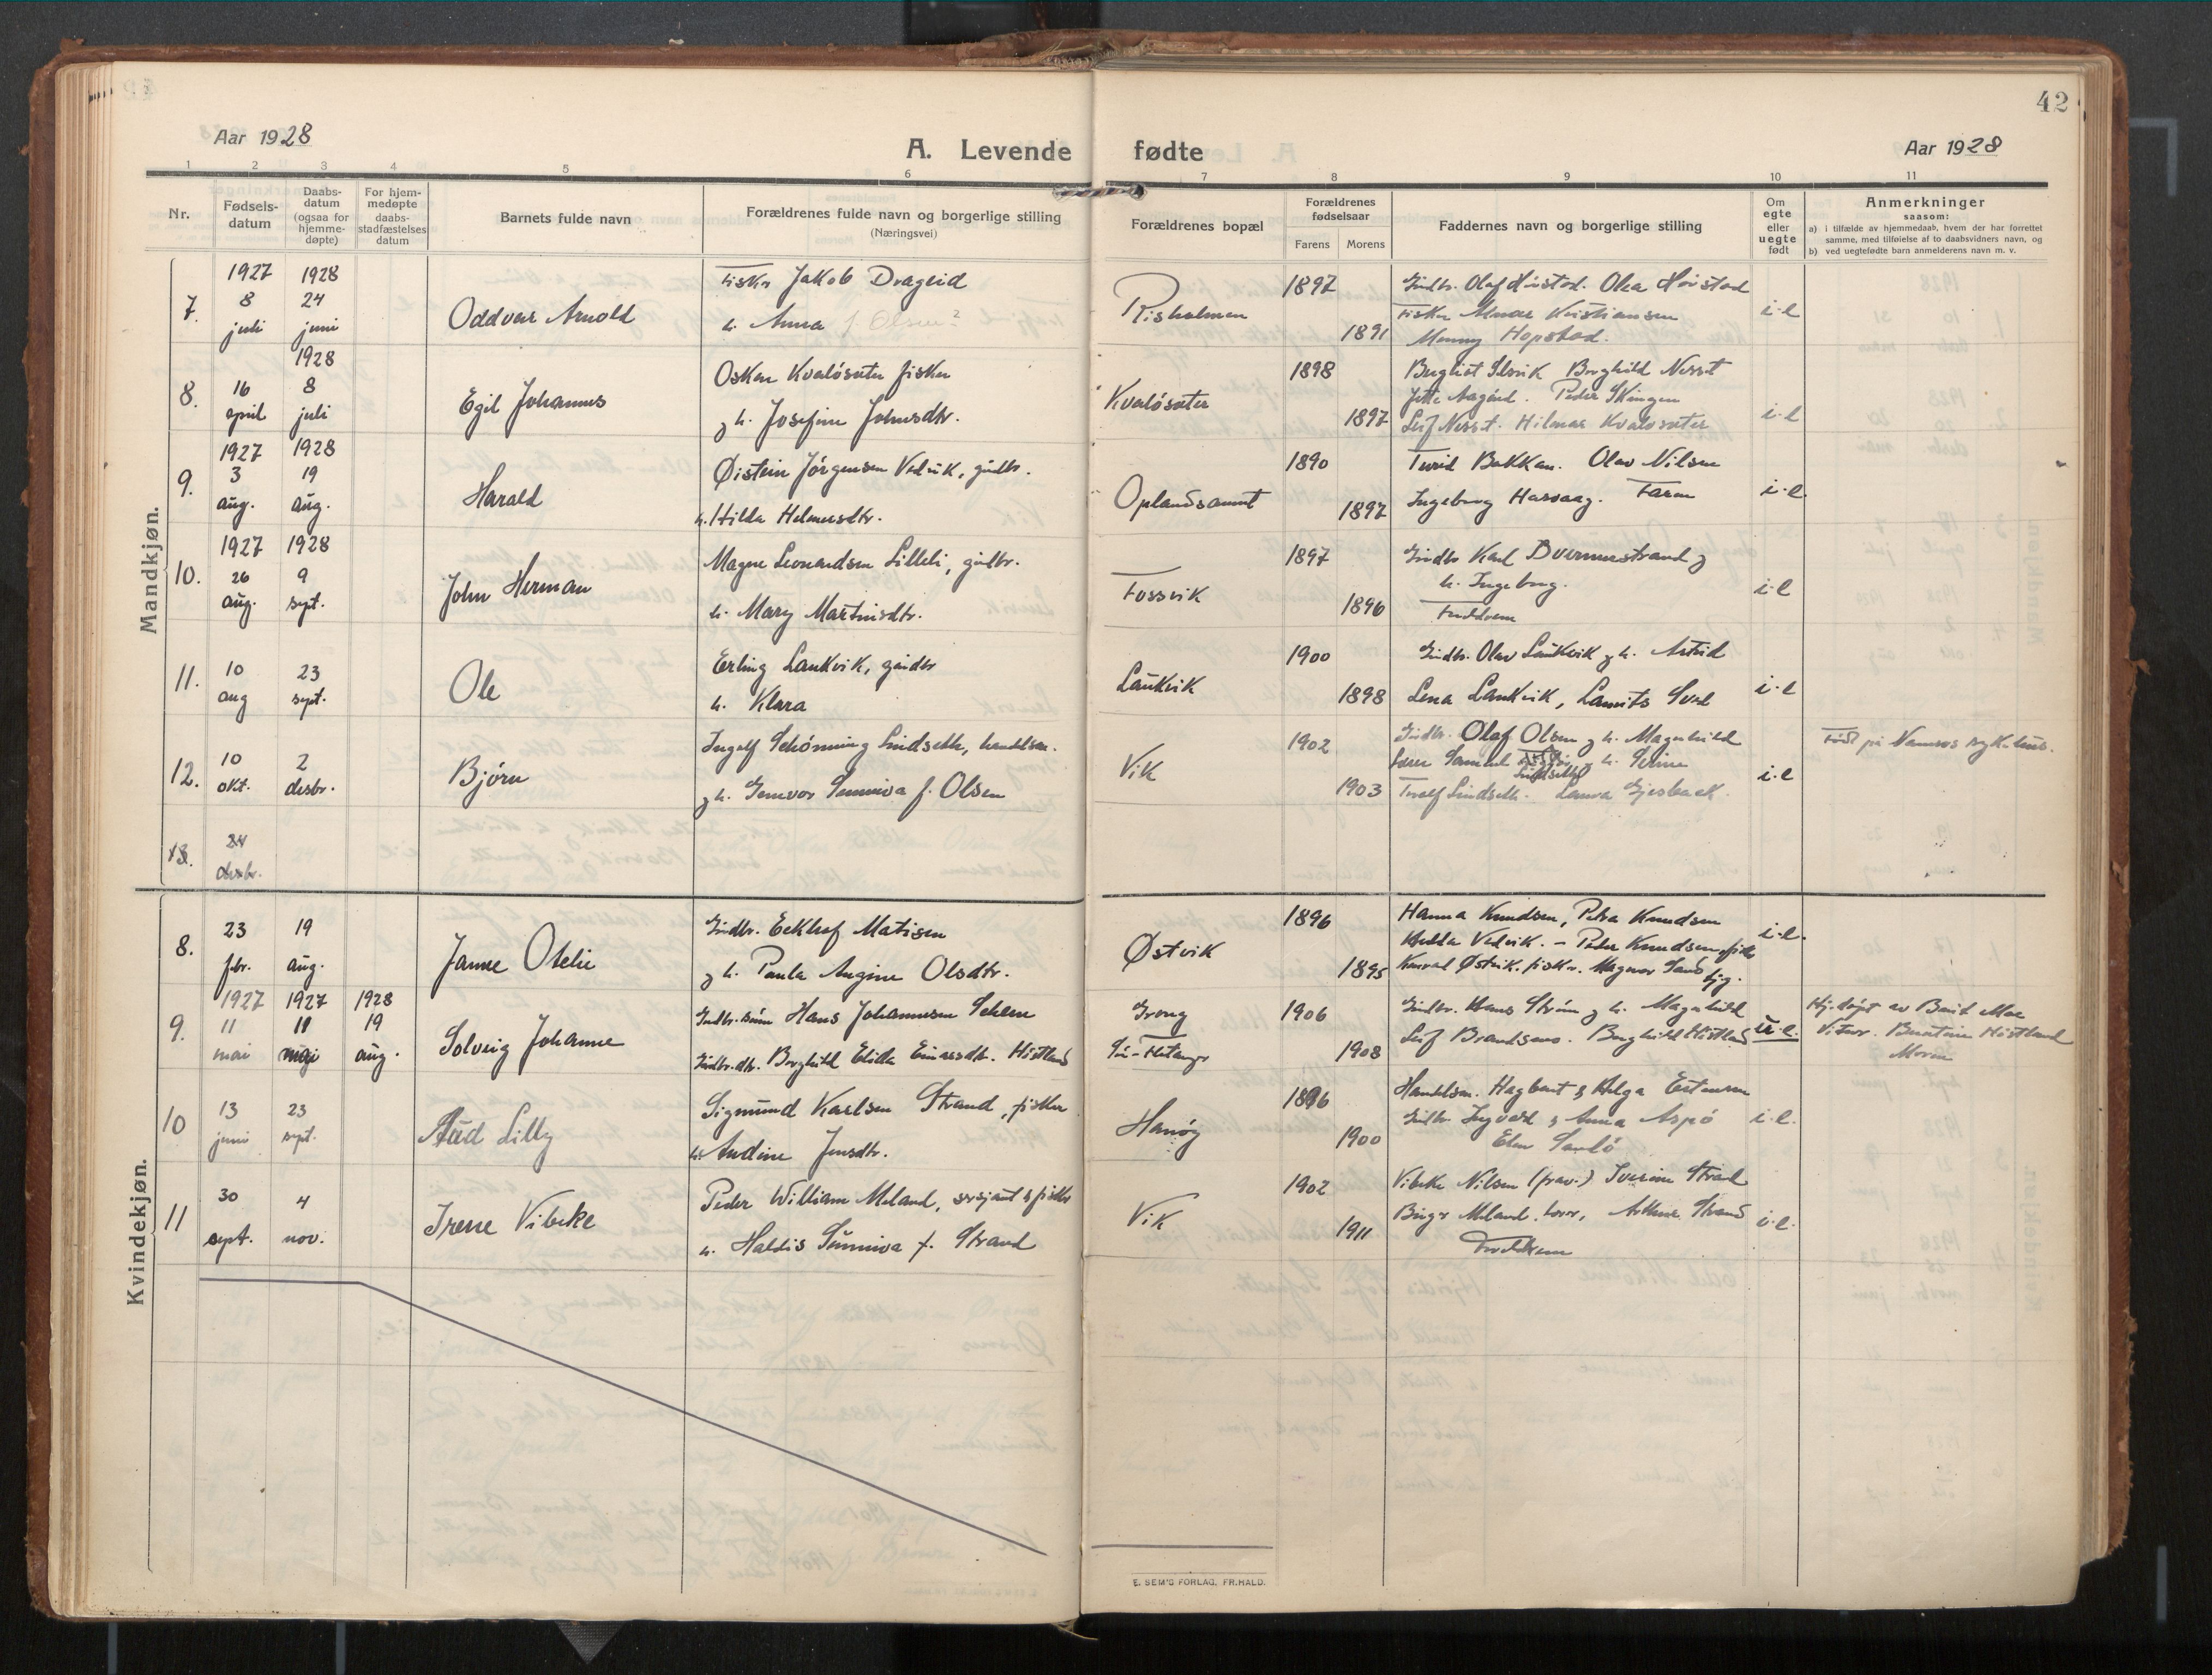 42
Aar 1928
A. Levende
fødte
Aar 1928
1 2 3 4 5 6 7 8 9 10 11
Nr.
Fødsels-
datum
Daabs-
datum
(ogsaa for
hjemme-
døpte)
For hjem-
medøpte
daabs-
stadfæstelses
datum
Barnets fulde navn
Forældrenes fulde navn og borgerlige stilling
(Næringsvei)
Forældrenes bopæl
Forældrenes
fødselsaar
Farens Morens
Faddernes navn og borgerlige stilling
Om
egte
eller
uegte
født
Anmerkninger
saasom:
a) i tilfælde av hjemmedaab, hvem der har forrettet
samme, med tilføielse af to daabsvidners navn, og
b) ved uegtefødte barn anmelderens navn m. v.
Mandkjøn.
7.
1927
8
juli
1928
24
juni
Oddvar Arnold
Fisker Jakob Drageid
h. Anna f. Olsen?
Risholmen
1897
1891
Gndbr. Olaf Hovstad. Olea Hovstad
Fisker Kristiansen
Hopstad.
i.e
8.
16
april
1928
8
juli
Egil Johannes
Oskar Kvaløsæter fisker
g h. Josefine Johnsdtr.
Kvaløsæter
1898
1897
Borghild Nesset
Peder Skingen
Leif Nesset. Hilmar Kvaløsæter
i.e
9.
1927
3
aug.
1928
19
aug.
Harald
Øistein Jørgensen Vedvik, gndbr.
h. Hilda Helmersdtr.
Oplandsamt
1890
1897
Turid Bakkan. Olav Nilsen
Ingeborg Harsaag. Faren
i.e.
10.
1927
26
aug.
1928
9
sept.
John Herman
Magne Leonardsen Lilleli, gndbr.
h. Mary Martinsdtr.
Fossvik
1897
1896
Gndbr Karl Duermestrand g
h. Ingeborg.
Foreldrene
i.e
11.
10
aug
23
sept.
Ole
Erling Laukvik, gndbr
h. Klara
Laukvik
1900
1898
Gndbr. Olav Laukvik g h. Astrid
Lena Laukvik, Laurits
i.e
12.
10
okt.
2
desbr.
Bjørn
Ingolf Schønning Lindseth, handelsm.
g h. Gunvor Sunniva f. Olsen
Vik
1902
1903
Gndbr. Olaf Olsen g h. Magnhild
Lærer Samuel Lindseth g h.
Toralf Lindseth. Laura Gjesback.
i.e
Født på Namsos sykehus.
13.
24
desbr.
Kvindekjøn.
8.
23
fbr.
19
aug.
Janne Otelie
Gndbr. Eckhof Matisen
g h. Paula Angine Olsdtr.
Østvik
1896
1895
Hanna Knudsen, Petra Knudsen
Hedda Vedvik. - Peder Knudsen, fisker
Konrad Østvik. fisker. Magnor Sand
i.e.
9.
1927
11
mai
1927
11
mai
1928
19
aug.
Solveig Johanne
Gndbr.sønn Hans Johannesen Sehlem
Gndbr.dtr. Borghild Elida Einarsdtr. Høstland
Grong
Sør-Flatanger
1906
1908
Gndbr. Hans Strøm g h. Magnhild
Leif Brandsmo. Borghild Høstland
u.e.
Hj.døpt av Berit Moe
Vitner. Berntine Høstland
Moren
10
13
juni
23
sept.
Aud Lilly
Sigmund Karlsen Strand, fisker
h. Andine Jensdtr.
Hanøy
1896
1900
Handelsm. Hagbart & Helga Estensen
Gndbr. Ingvald & Anna Aspø
i.e.
11
30
sept.
4
nov.
Irene Vibeke
Peder William Meland, sersjant & fisker
h. Haldis Sunniva f. Strand
Vik
1902
1911
Vibeke Nilsen (prov.) Iverine Strand
Birger Meland. Arthur Strand
Foreldrene
i.e.
E. SEM'S FORLAG, FR.HALD.